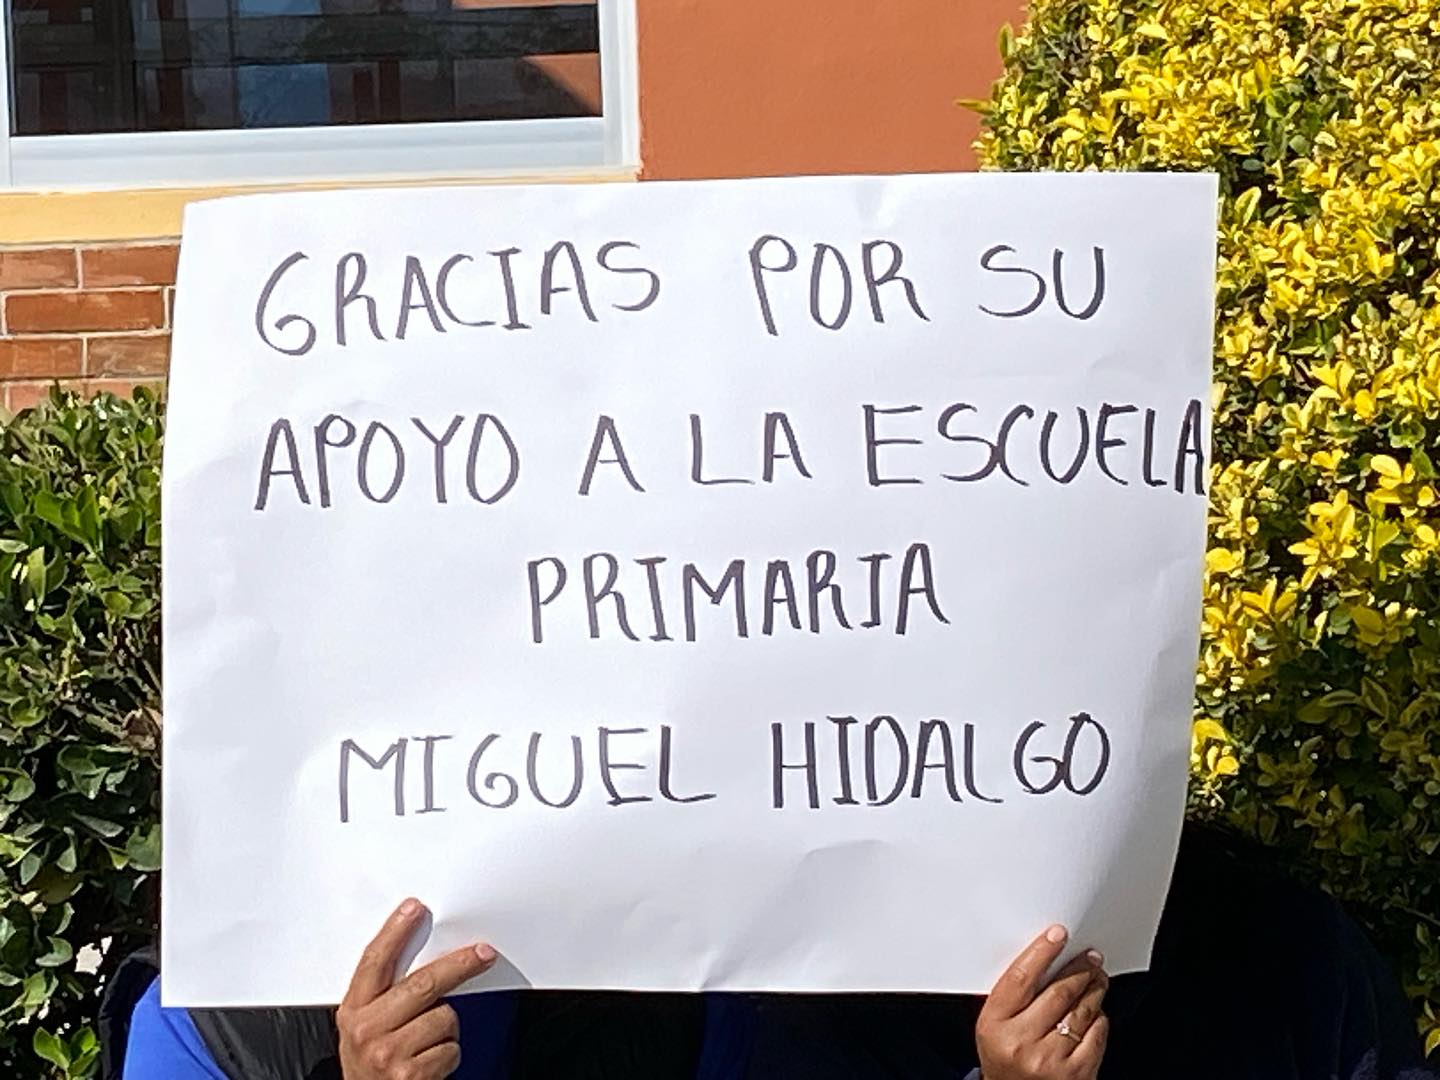 GRACIAS POR SU
APOYO A LA ESCUELA
PRIMARIA
MIGUEL HIDALGO